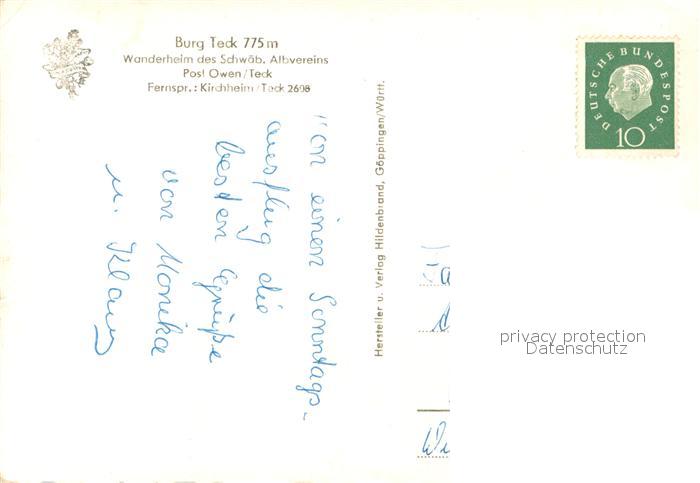 Burg Teck 775 m
Wanderheim des Schwäb. Albvereins
Post Owen/Teck
Fernspr.: Kirchheim/Teck 2698
Von einen Sonntags-
ausflug die
besten Grüße
von Monika
u. Klaus
Hersteller u. Verlag Hildenbrand, Göppingen/Württ.
DEUTSCHE BUNDESPOST
10
privacy protection
Datenschutz